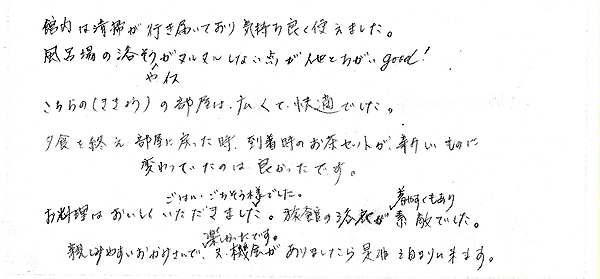 館内は清掃が行き届いており気持ち良く使えました。
風呂場の浴そうがヌルヌルしない点が他とちがいgood!
やイス
こちらの(ききょう)の部屋は、広くて、快適でした。
夕食を終え部屋に戻った時、到着時のお茶セットが、新しいものに
変わっていたのは良かったです。
ごはい、ごちそう様でした。 着やすくもあり
お料理はおいしくいただきました。旅館の浴衣が素敵でした。
楽しかったです。
親しみやすいおかみさんで、又、機会がありましたら是非泊まりに来ます。